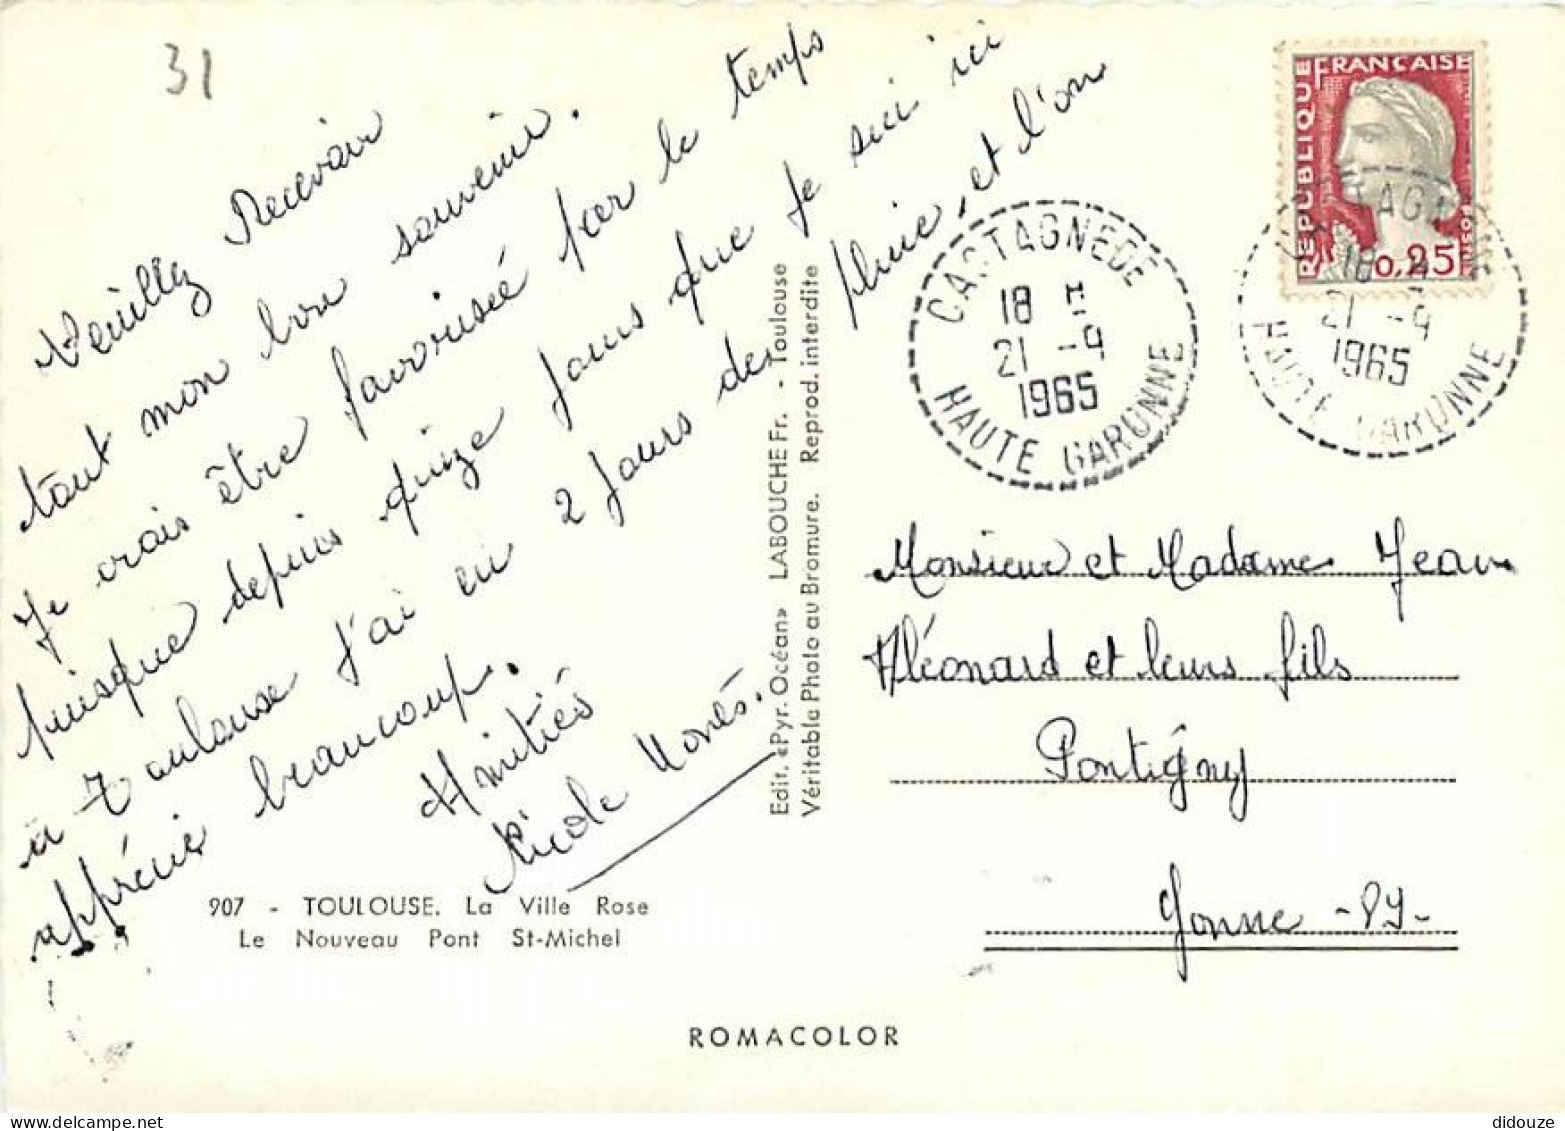 31
Veuillez Recevoir
tout mon bon souvenir.
Je crois être favorisée par le temps
puisque depuis quinze jours que je suis ici
à Toulouse j'ai eu 2 jours de pluie, et l'on
apprécie beaucoup.
Amitiés
Nicole
907 - TOULOUSE. La Ville Rose
Le Nouveau Pont St-Michel
Edit. «Pyr. Océan» LABOUCHE Fr. - Toulouse
Véritable Photo au Bromure. Reprod. interdite
ROMACOLOR
REPUBLIQUE FRANCAISE
POSTES
0,25
CASTAGNEDE
18 H
21 -9
1965
HAUTE GARONNE
18 H
21 -9
1965
HAUTE GARONNE
Monsieur et Madame Jean
Aléonard et leurs fils
Pontigny
Yonne - 89 -
didouze